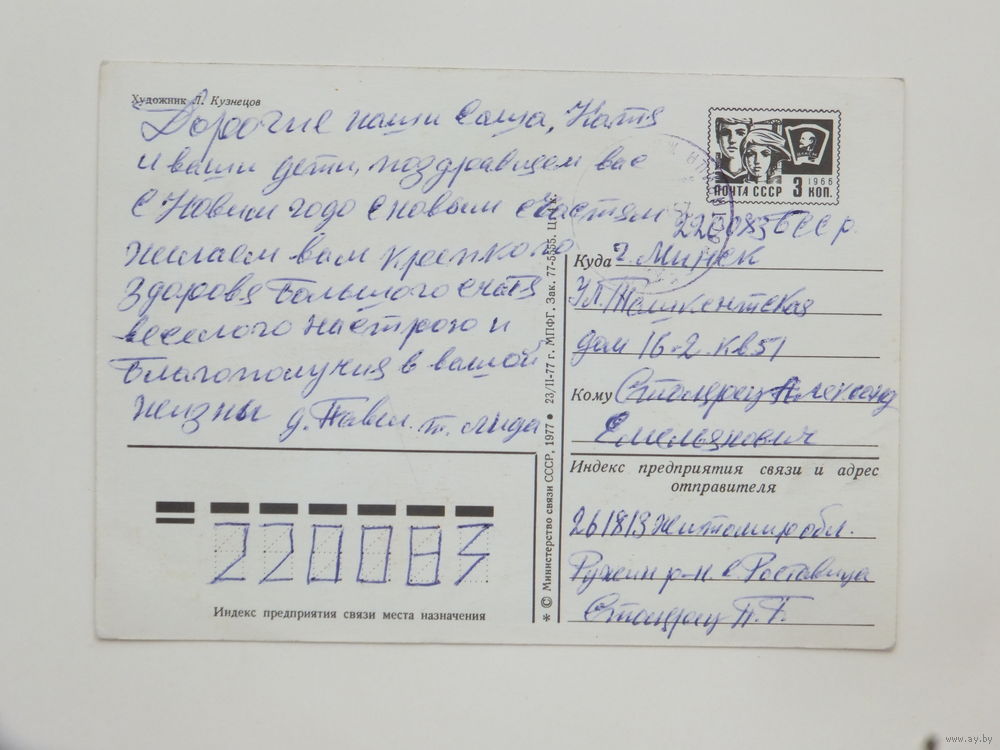 Художник Л. Кузнецов
Дорогие наши Саша, Катя
и ваши дети, поздравщем вас
С Новим годо с новым счастям
желаем вам крепкого
здоровя Большого счатя
веселого настрою и
Благополучия в вашой
жизны д. Павел. т. Лида
ПОЧТА СССР 3 КОП.
1966
220083 БССР.
Куда г. Минск
Ул. Ташкентская
дом 16-2. кв 51
Кому Александ
Емельянович
Индекс предприятия связи и адрес
отправителя
261813 Житомир обл.
Ружин р-н. с. Роставица
П. Г.
220083
Индекс предприятия связи места назначения
* © Министерство связи СССР, 1977 ● 23/II-77 г. МПФГ. Зак. 77-5555. Ц. 4 к.
www.ay.by